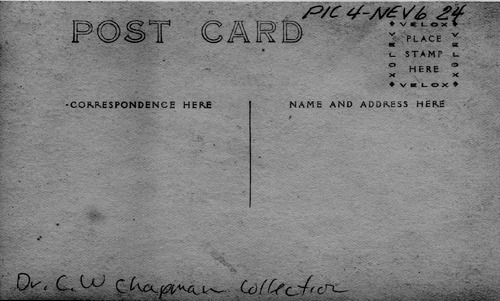 PIC 4-NEV6 24
POST CARD
VELOX
VELOX
PLACE
STAMP
HERE
VELOX
VELOX
CORRESPONDENCE HERE
NAME AND ADDRESS HERE
Dr. C. W Chapman Collection